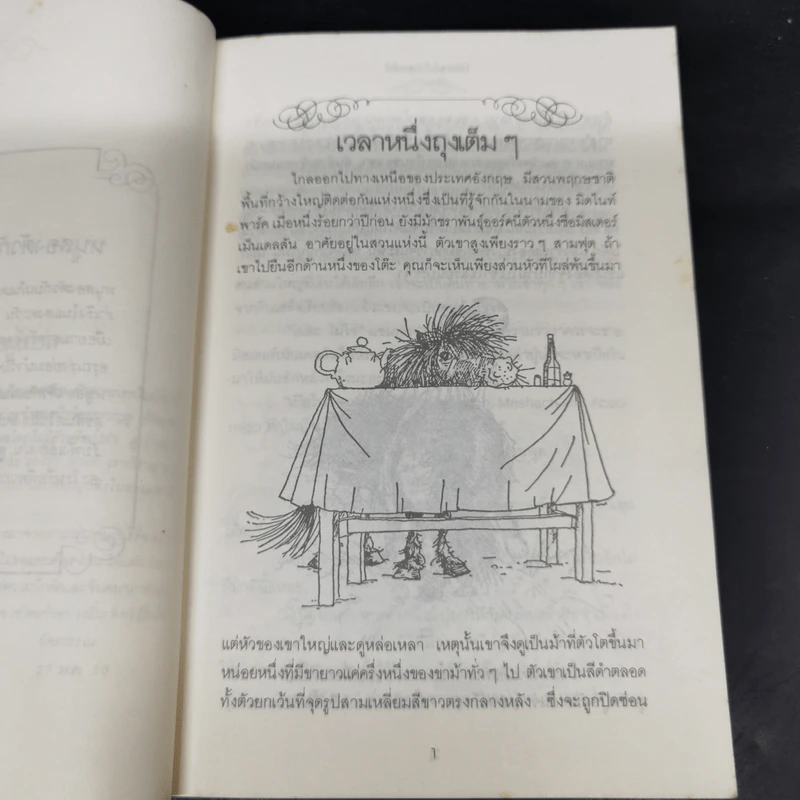 เวลาหนึ่งถุงเต็ม ๆ
ไกลออกไปทางเหนือของประเทศอังกฤษ มีสวนพฤกษชาติ
พื้นที่กว้างใหญ่ติดต่อกันแห่งหนึ่งซึ่งเป็นที่รู้จักกันในนามของ มิดไนท์
พาร์ค เมื่อหนึ่งร้อยกว่าปีก่อน ยังมีม้าชราพันธุ์ออร์คนี่ตัวหนึ่งชื่อมิสเตอร์
เม็นเดลสัน อาศัยอยู่ในสวนแห่งนี้ ตัวเขาสูงเพียงราว ๆ สามฟุต ถ้า
เขาไปยืนอีกด้านหนึ่งของโต๊ะ คุณก็จะเห็นเพียงส่วนหัวที่โผล่พ้นขึ้นมา
แต่หัวของเขาใหญ่และดูหล่อเหลา เหตุนั้นเขาจึงดูเป็นม้าที่ตัวโตขึ้นมา
หน่อยหนึ่งที่มีขายาวแค่ครึ่งหนึ่งของขาม้าทั่ว ๆ ไป ตัวเขาเป็นสีดำตลอด
ทั้งตัวยกเว้นที่จุดรูปสามเหลี่ยมสีขาวตรงกลางหลัง ซึ่งจะถูกปิดซ่อน
1